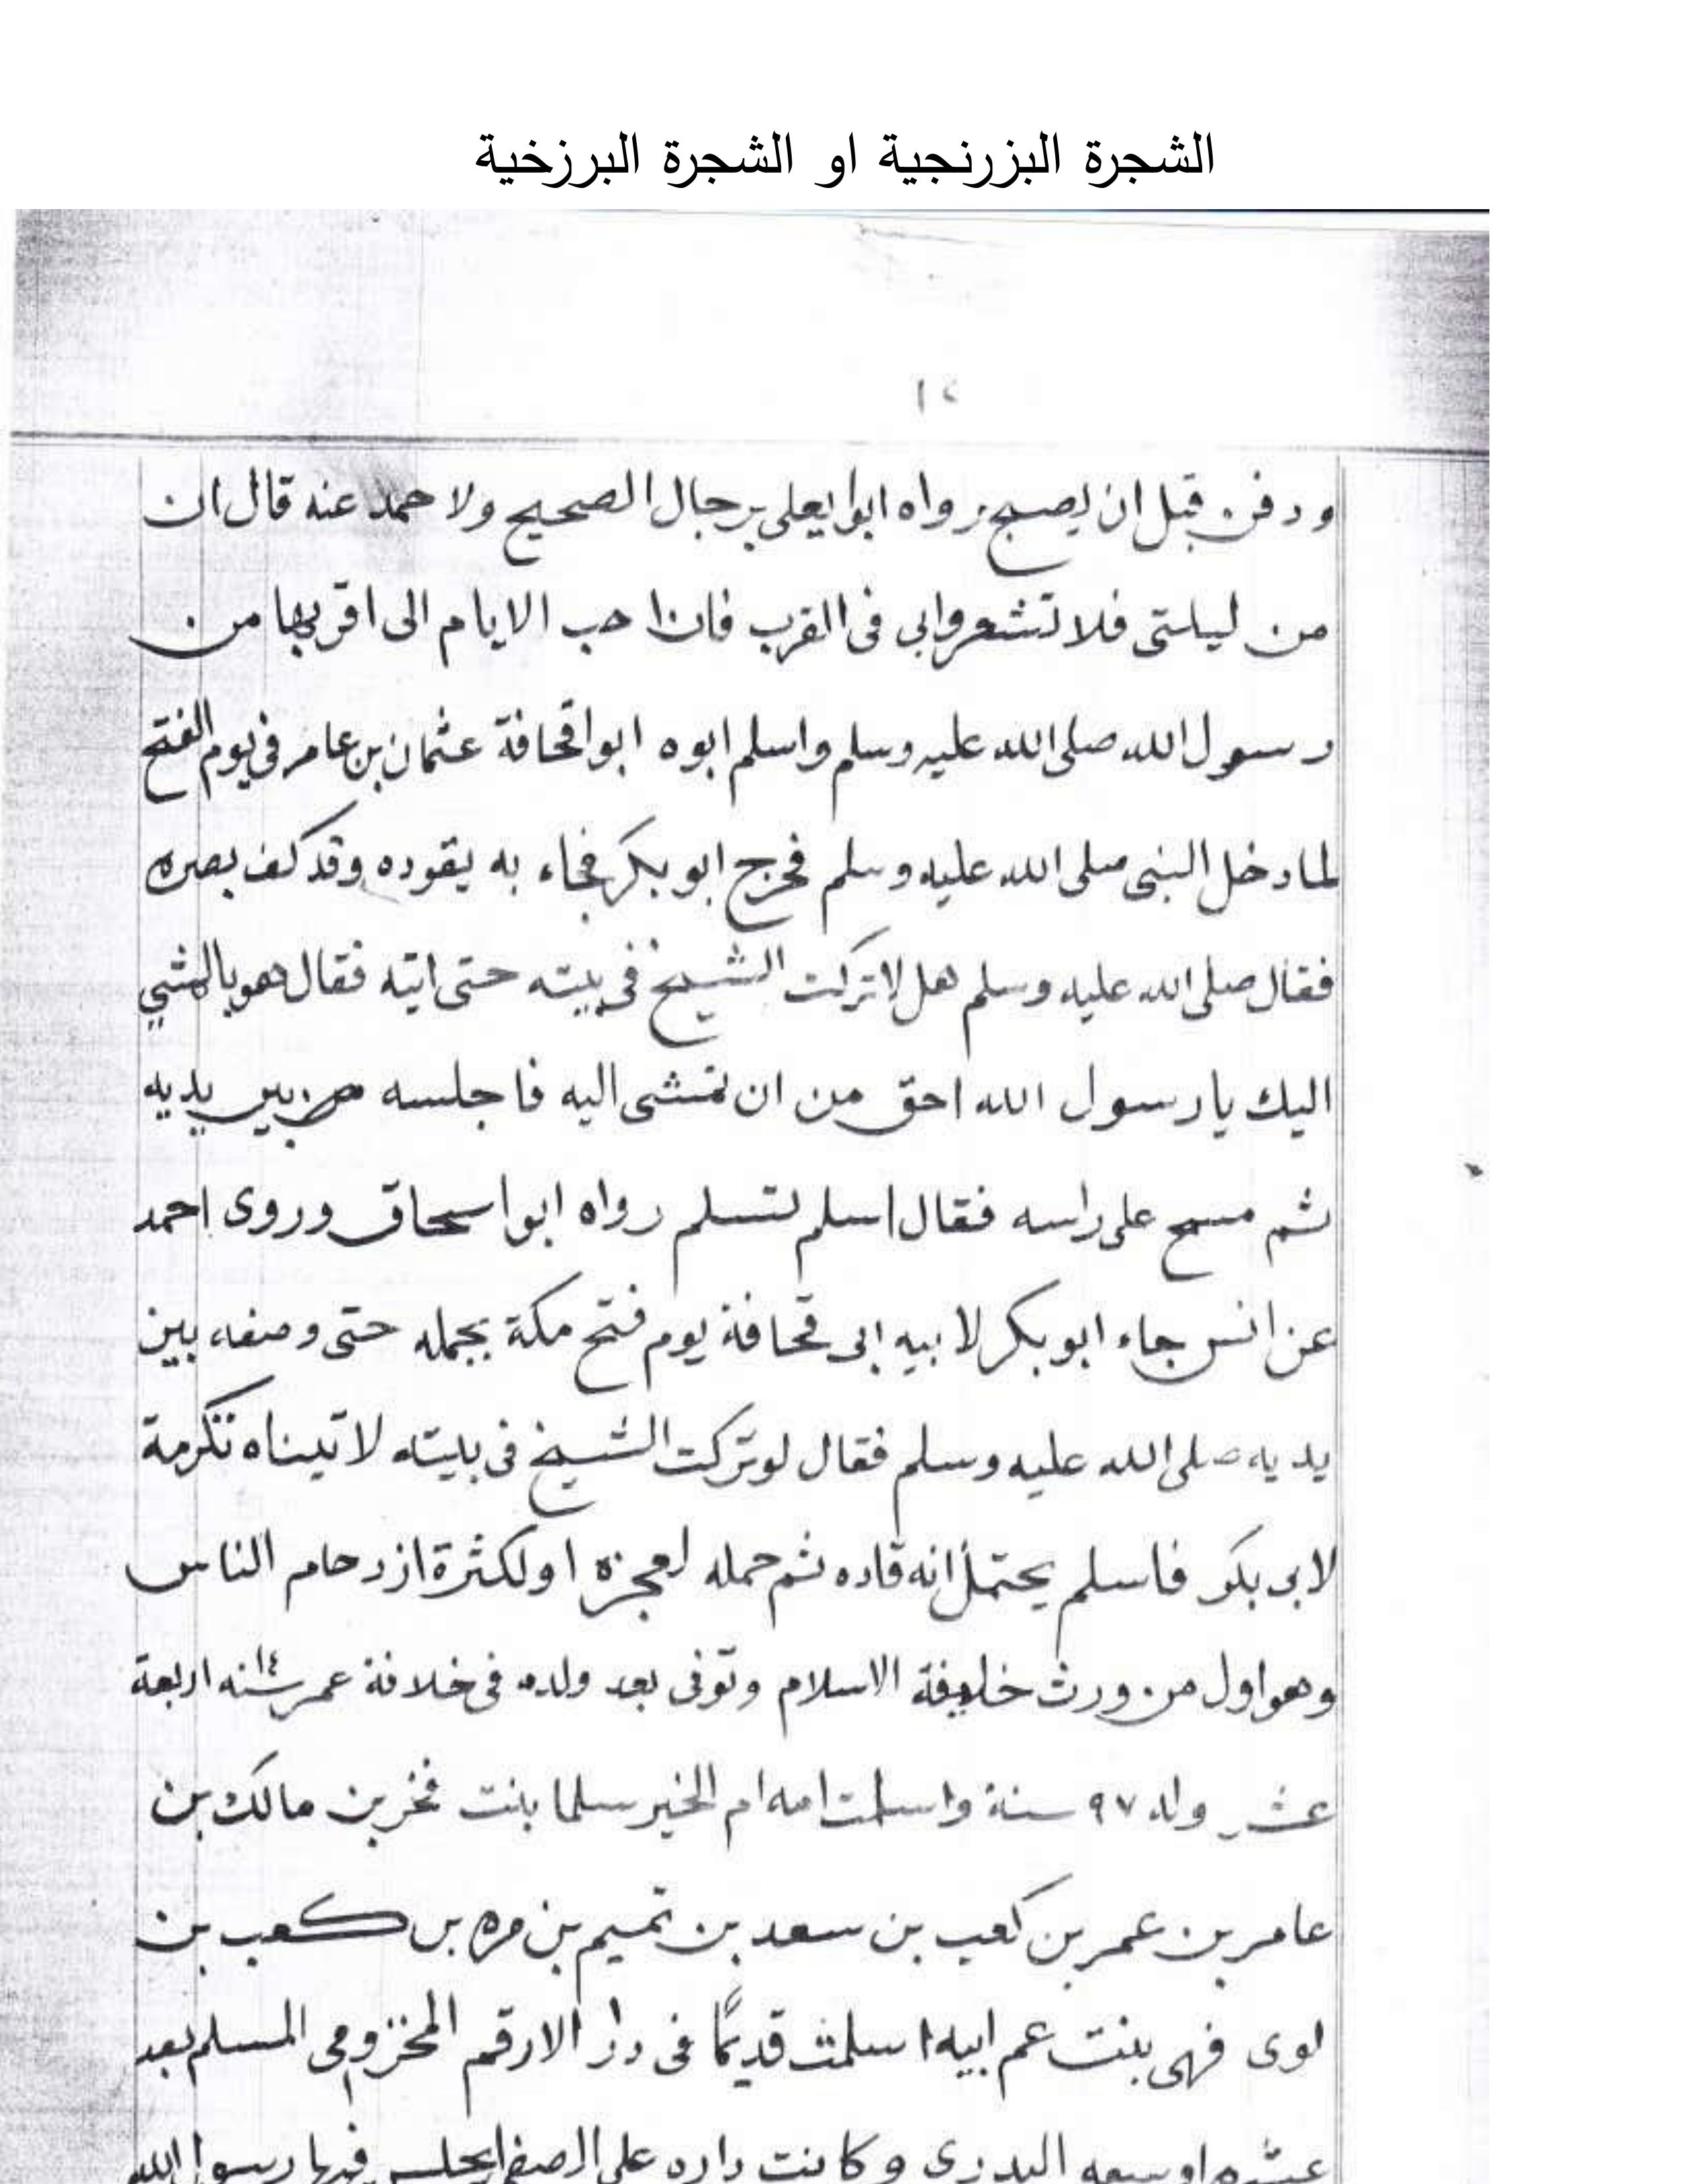 الشجرة البزرنجية او الشجرة البرزخية
١٢
ودفن قبل ان يصبح رواه ابوا يعلى برجال الصحيح ولا حمد عنه قال ان
من ليلتى فلا تشعروابى فى القرب فان احب الايام الى اقربها من
رسول الله صلى الله عليه وسلم واسلم ابوه ابوا قحافة عثمان بن عامر فى يوم الفتح
لما دخل النبى صلى الله عليه وسلم فخرج ابو بكر فجاء به يقوده وقد كف بصره
فقال صلى الله عليه وسلم هل لا تركت الشيخ فى بيته حتى اتيه فقال هو بالمشي
اليك يا رسول الله احق من ان تمشى اليه فاجلسه بين يديه
ثم مسح على راسه فقال اسلم تسلم رواه ابوا سحاق وروى احمد
عن انس جاء ابو بكر لابيه ابى قحافة يوم فتح مكة يحمله حتى وضعه بين
يديه صلى الله عليه وسلم فقال لو تركت الشيخ فى بيته لاتيناه تكرمة
لابى بكر فاسلم يحتمل انه قاده ثم حمله لعجزه او لكثرة ازدحام الناس
وهو اول من ورث خليفة الاسلام وتوفى بعد ولده فى خلافة عمر سنه ١٤ اربعة
عشر وله ٩٧ سنة واسلمت امه ام الخير سلما بنت فخر بن مالك بن
عامر بن عمر بن كعب بن سعد بن تميم بن مره بن كعب بن
لوى فهى بنت عم ابيه اسلمت قديمًا فى دار الارقم المخزومى المسلم بعد
عشره او سبعه البدرى وكانت داره على الصفا يجلس فيها رسول الله